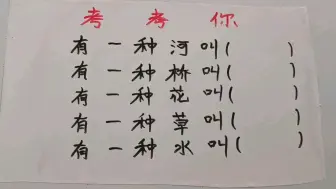 考考你
有一种河叫( )
有一种桥叫( )
有一种花叫( )
有一种草叫( )
有一种水叫( )